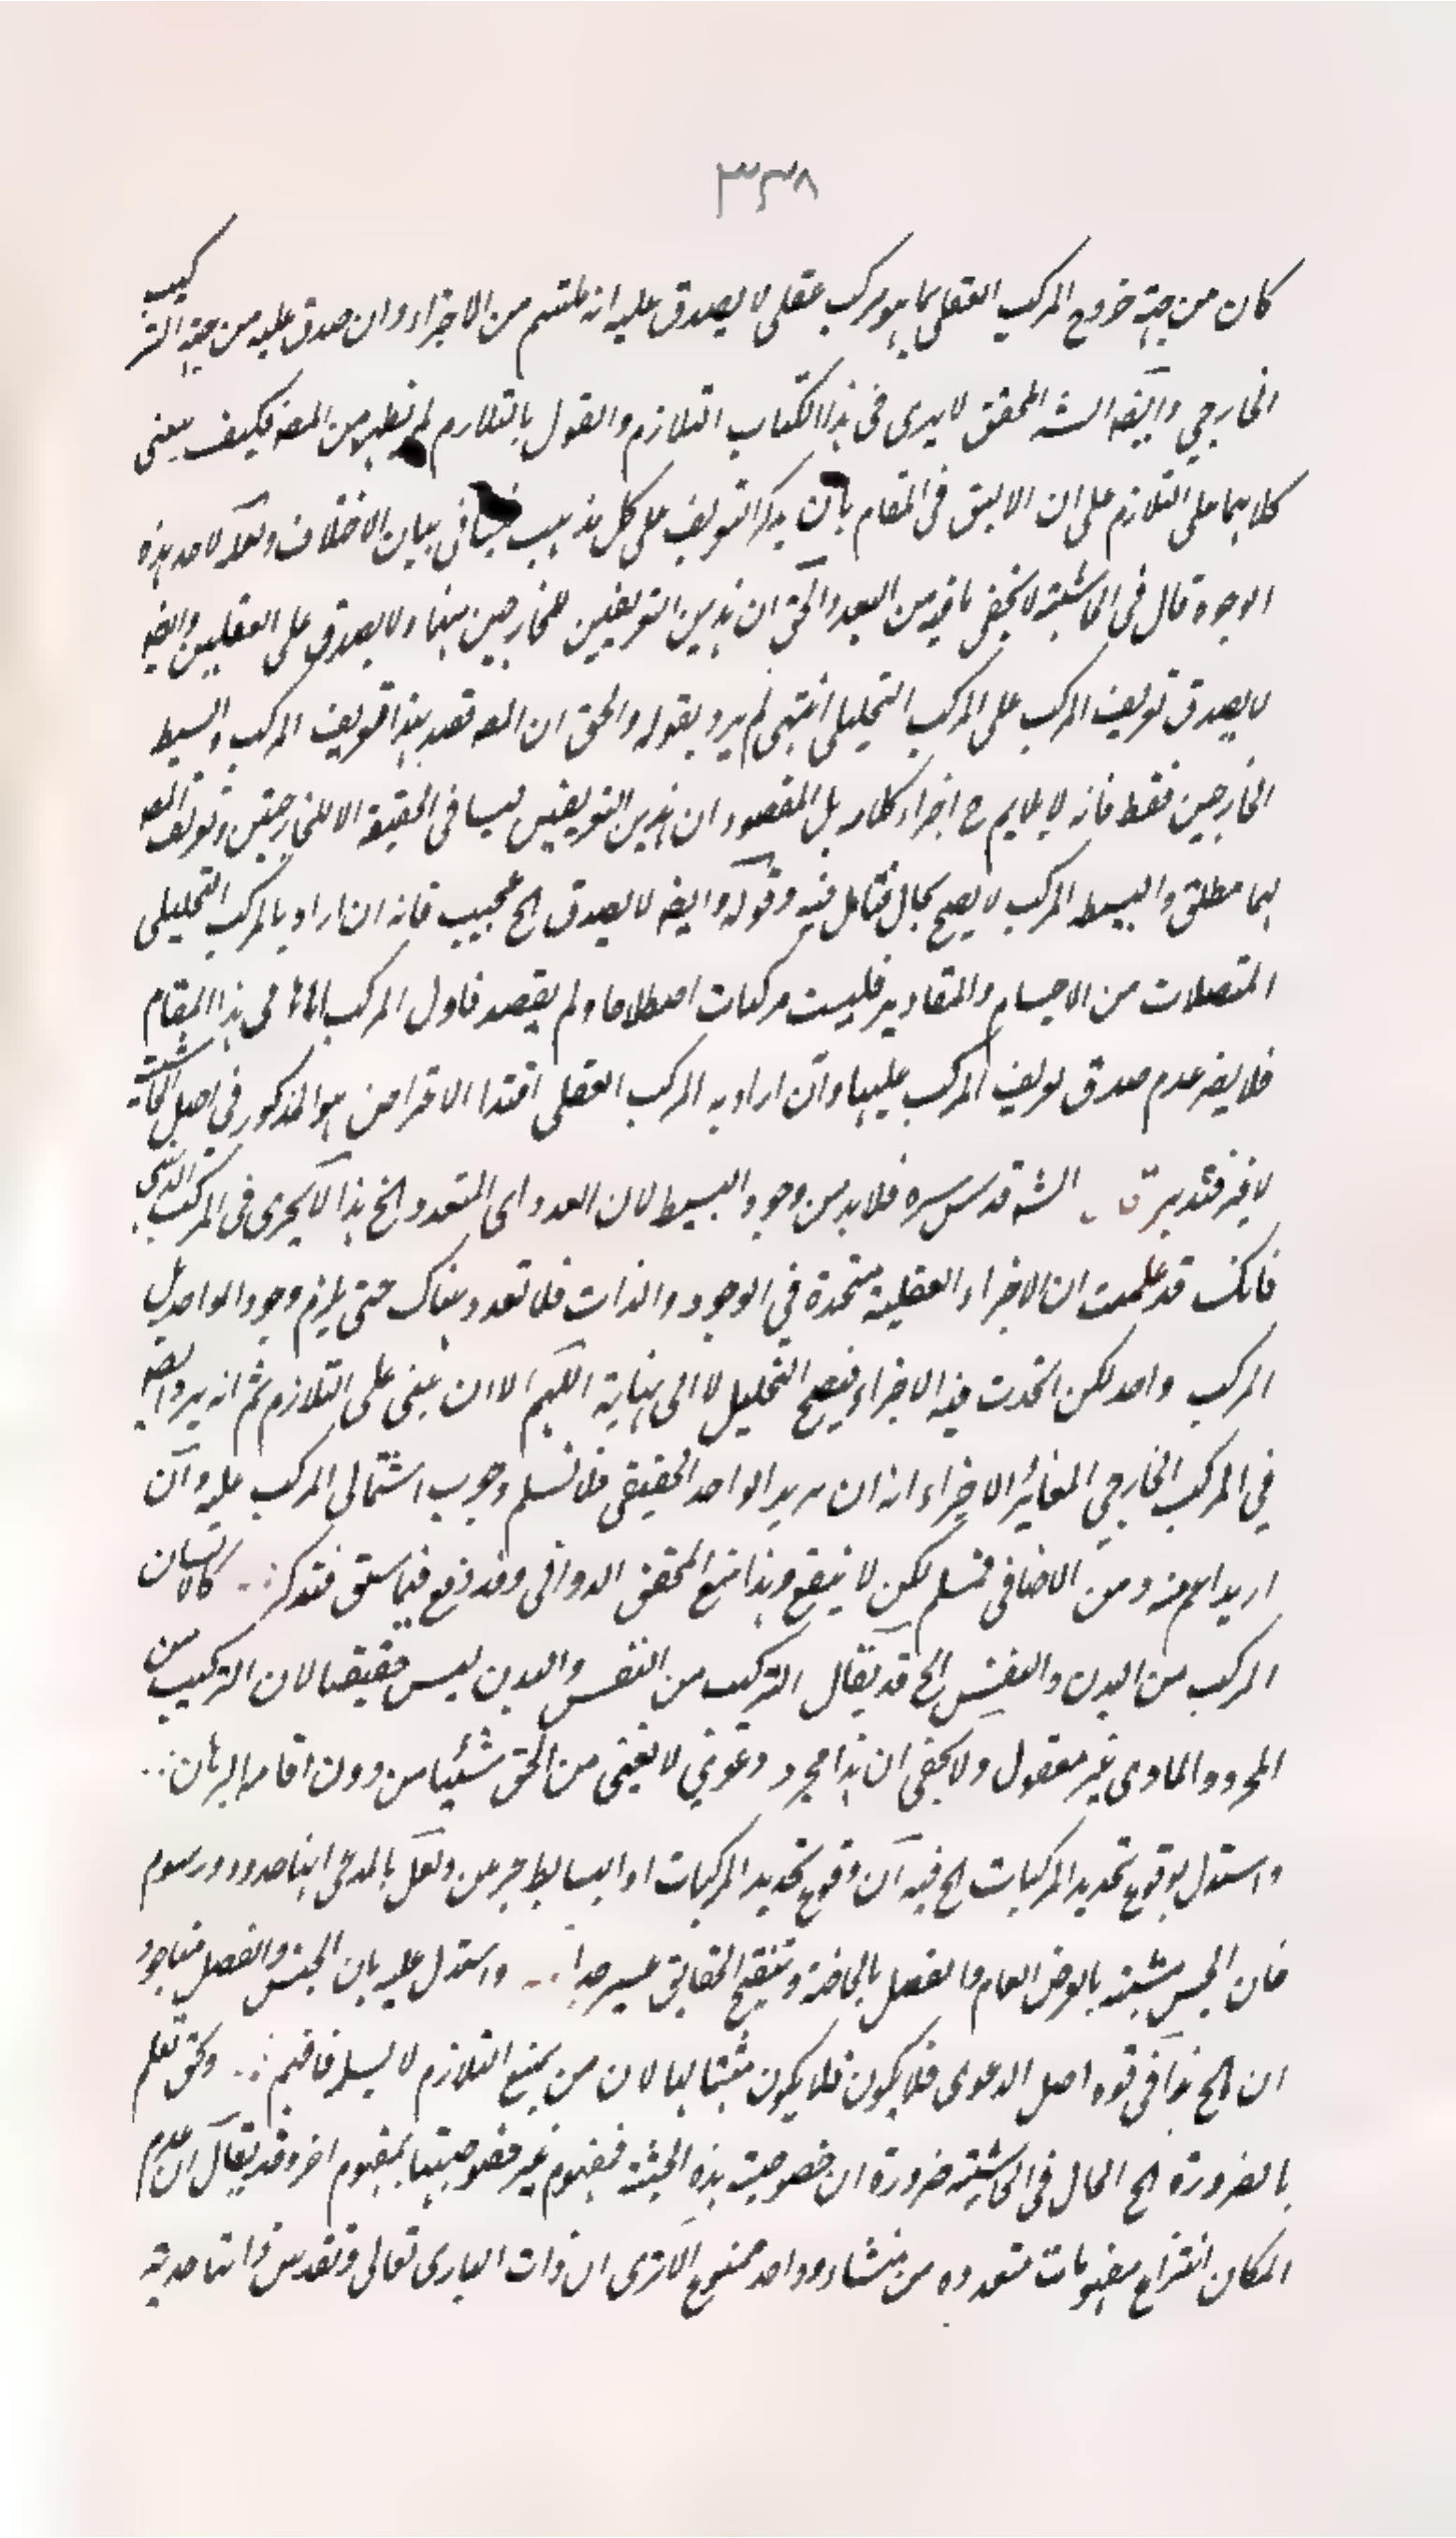 ٣٣٨
كان من جهة خروج المركب العقلى بما هو مركب عقلى لا يصدق عليه انه ملتئم من الاجزاء وان صدق عليه من جهة التركيب
الخارجي وايضه الشه المحقق لا يرى فى هذا الكتاب التلازم والقول بالتلازم لم يظهر من المصه فكيف يبنى
كلامهما على التلازم على ان الاليق فى المقام بان يذكر التعريف على كل مذهب فى بيان الاختلاف ولعله لاحد هذه
الوجوه قال فى الحاشية لا يخفى ما فيه من البعد والحق ان هذين التعريفين للخارجين منهما ولا يصدق على العقليين وايضه
لا يصدق تعريف المركب على المركب التحليلى انتهى لم يرد بقوله والحق ان المصه قصد بهذا تعريف المركب والبسيط
الخارجين فقط فانه لا يلايم ح اجزاء كلامه بل المقصود ان هذين التعريفين ليسا فى الحقيقة الا للخارجين وتعريف المصه
بهما مطلق والبسيط المركب لا يصح بحال فتامل فيه وقوله وايضه لا يصدق الخ عجيب فانه ان اراد بالمركب التحليلى
المتصلات من الاجسام والمقادير فليست مركبات اصطلاحا ولم يقصد فاول المركب فى هذا المقام
فلا يضر عدم صدق تعريف المركب عليها وان اراد به المركب العقلى الاعتراض هو المذكور فى اصل الحاشية
لا غير فتدبر ق الشه قدس سره فلا بد من وجود البسيط لان العدد اى المتعدد الخ هذا لا يجرى فى المركب الذهنى
فانك قد علمت ان الاجزاء العقلية متحدة فى الوجود والذات فلا تعدد هناك حتى يلزم وجود الواحد بل
المركب واحد لكن اتحدت فيه الاجزاء فيصح التحليل لا الى نهاية اللهم الا ان يبنى على التلازم ثم انه يرد ايضه
فى المركب الخارجي المغائر الاجزاء انه ان يريد الواحد الحقيقى فلا نسلم وجوب اشتمال المركب عليه وان
اريد اعم منه ومن الاضافى فمسلم لكن لا ينفع وهذا منع المحقق الدوانى وقد دفع فيما سبق فتذكر كالانسان
المركب من البدن والنفس الخ قد يقال التركيب من النفس والبدن ليس حقيقيا لان التركيب من
المجرد والمادى غير معقول ولا يخفى ان هذا مجرد دعوى لا يغنى من الحق شيئا من دون اقامة البرهان
واستدل بوقوع تحديد المركبات الخ فيه ان وقوع تحديد المركبات او البسايط حير من ولعل بالمدعى انها حدود ورسوم
فان الجنس مشتبه بالعرض العام والفصل بالخاصة وتنقيح الحقايق عسير جدا واستدل عليه بان الجنس والفصل متباعد
ان الخ هذا فى قوة اصل الدعوى فلا يكون فلا يكون مثبتا لها لان من يمنع التلازم لا يسلم فافهم ونحن نعلم
بالضرورة الخ الحال فى الحاشية ضرورة ان خصوصية هذه الحيثية مفهوم غير خصوصيتها بمفهوم اخر وقد يقال ان عدم
امكان انتزاع مفهومات متعدده من منشاء وواحد ممنوع الا ترى ان ذات البارى تعالى وتقدس ذاتا احدية